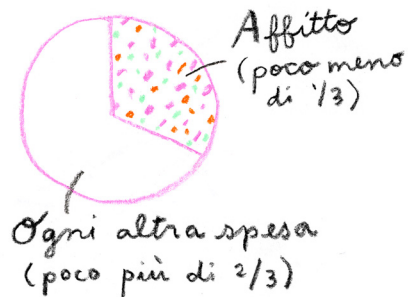 Affitto
(poco meno
di 1/3)
Ogni altra spesa
(poco più di 2/3)